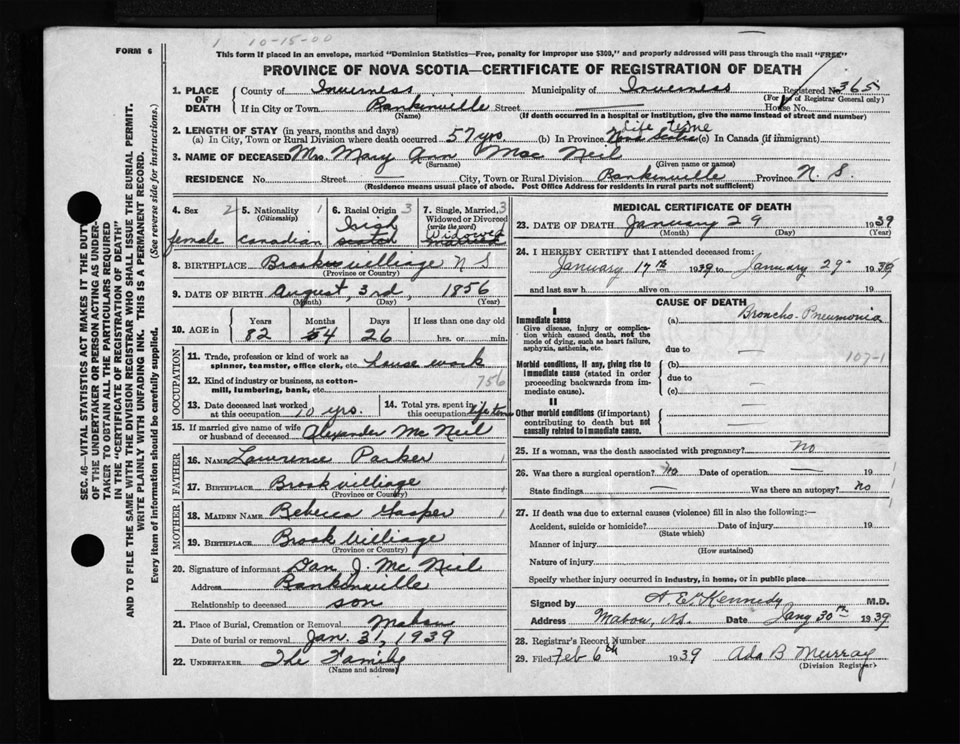 1 10-15-00
FORM 6
This form if placed in an envelope, marked "Dominion Statistics—Free, penalty for improper use $300," and properly addressed will pass through the mail "FREE"
PROVINCE OF NOVA SCOTIA—CERTIFICATE OF REGISTRATION OF DEATH
SEC. 46—VITAL STATISTICS ACT MAKES IT THE DUTY
OF THE UNDERTAKER OR PERSON ACTING AS UNDER-
TAKER TO OBTAIN ALL THE PARTICULARS REQUIRED
IN THE "CERTIFICATE OF REGISTRATION OF DEATH"
AND TO FILE THE SAME WITH THE DIVISION REGISTRAR WHO SHALL ISSUE THE BURIAL PERMIT.
WRITE PLAINLY WITH UNFADING INK. THIS IS A PERMANENT RECORD.
Every item of Information should be carefully supplied. (See reverse side for instructions.)
1. PLACE OF DEATH County of Inverness Municipality of Inverness Registered No. 365
(For use of Registrar General only)
If in City or Town Rankinville Street House No.
(Name) (If death occurred in a hospital or institution, give the name instead of street and number)
2. LENGTH OF STAY (in years, months and days)
(a) In City, Town or Rural Division where death occurred 57 yrs (b) In Province life time Nova Scotia (c) In Canada (if immigrant)
3. NAME OF DECEASED Mrs. Mary Ann Mac Neil
(Surname) (Given name or names)
RESIDENCE No. Street City, Town or Rural Division Rankinville Province N. S.
(Residence means usual place of abode. Post Office Address for residents in rural parts not sufficient)
4. Sex 2 female
5. Nationality 1 (Citizenship) Canadian
6. Racial Origin 3 Irish Scotch
7. Single, Married, 3 Widowed or Divorced (write the word) Widowed married
8. BIRTHPLACE Brook villiage N S
(Province or Country)
9. DATE OF BIRTH August, 3rd, 1856
(Month) (Day) (Year)
10. AGE in Years Months Days If less than one day old
82 54 26 hrs. or min.
OCCUPATION
11. Trade, profession or kind of work as spinner, teamster, office clerk, etc. house work
12. Kind of industry or business, as cotton-mill, lumbering, bank, etc. 756
13. Date deceased last worked at this occupation 10 yrs.
14. Total yrs. spent in this occupation life time
15. If married give name of wife or husband of deceased Alexander Mc Neil
FATHER
16. NAME Lawrence Parker 1
17. BIRTHPLACE Brook villiage 1
(Province or Country)
MOTHER
18. MAIDEN NAME Rebecca Gasper 1
19. BIRTHPLACE Brook Villiage
(Province or Country)
20. Signature of informant Dan J. Mc Neil
Address Rankinville
Relationship to deceased son
21. Place of Burial, Cremation or Removal Mabou
Date of burial or removal Jan. 31, 1939
22. UNDERTAKER The Family
(Name and address)
MEDICAL CERTIFICATE OF DEATH
23. DATE OF DEATH January 29 1939
(Month) (Day) (Year)
24. I HEREBY CERTIFY that I attended deceased from:
January 17th 1939 to January 29 1939
and last saw h alive on 19
CAUSE OF DEATH
I
Immediate cause (a) Broncho-Pneumonia
Give disease, injury or complication which caused death, not the mode of dying, such as heart failure, asphyxia, asthenia, etc.
due to —
107-1
Morbid conditions, if any, giving rise to immediate cause (stated in order proceeding backwards from immediate cause).
(b)
due to —
(c)
II
Other morbid conditions (if important) contributing to death but not causally related to immediate cause.
25. If a woman, was the death associated with pregnancy? No
26. Was there a surgical operation? No Date of operation — 19
State findings — Was there an autopsy? No
27. If death was due to external causes (violence) fill in also the following:—
Accident, suicide or homicide? Date of injury 19
(State which)
Manner of injury
(How sustained)
Nature of injury
Specify whether injury occurred in industry, in home, or in public place
Signed by A. E. Kennedy M.D.
Address Mabou, N.S. Date Jany 30th 1939
28. Registrar's Record Number
29. Filed Feb 6th 1939 Ada B Murray
(Division Registrar)